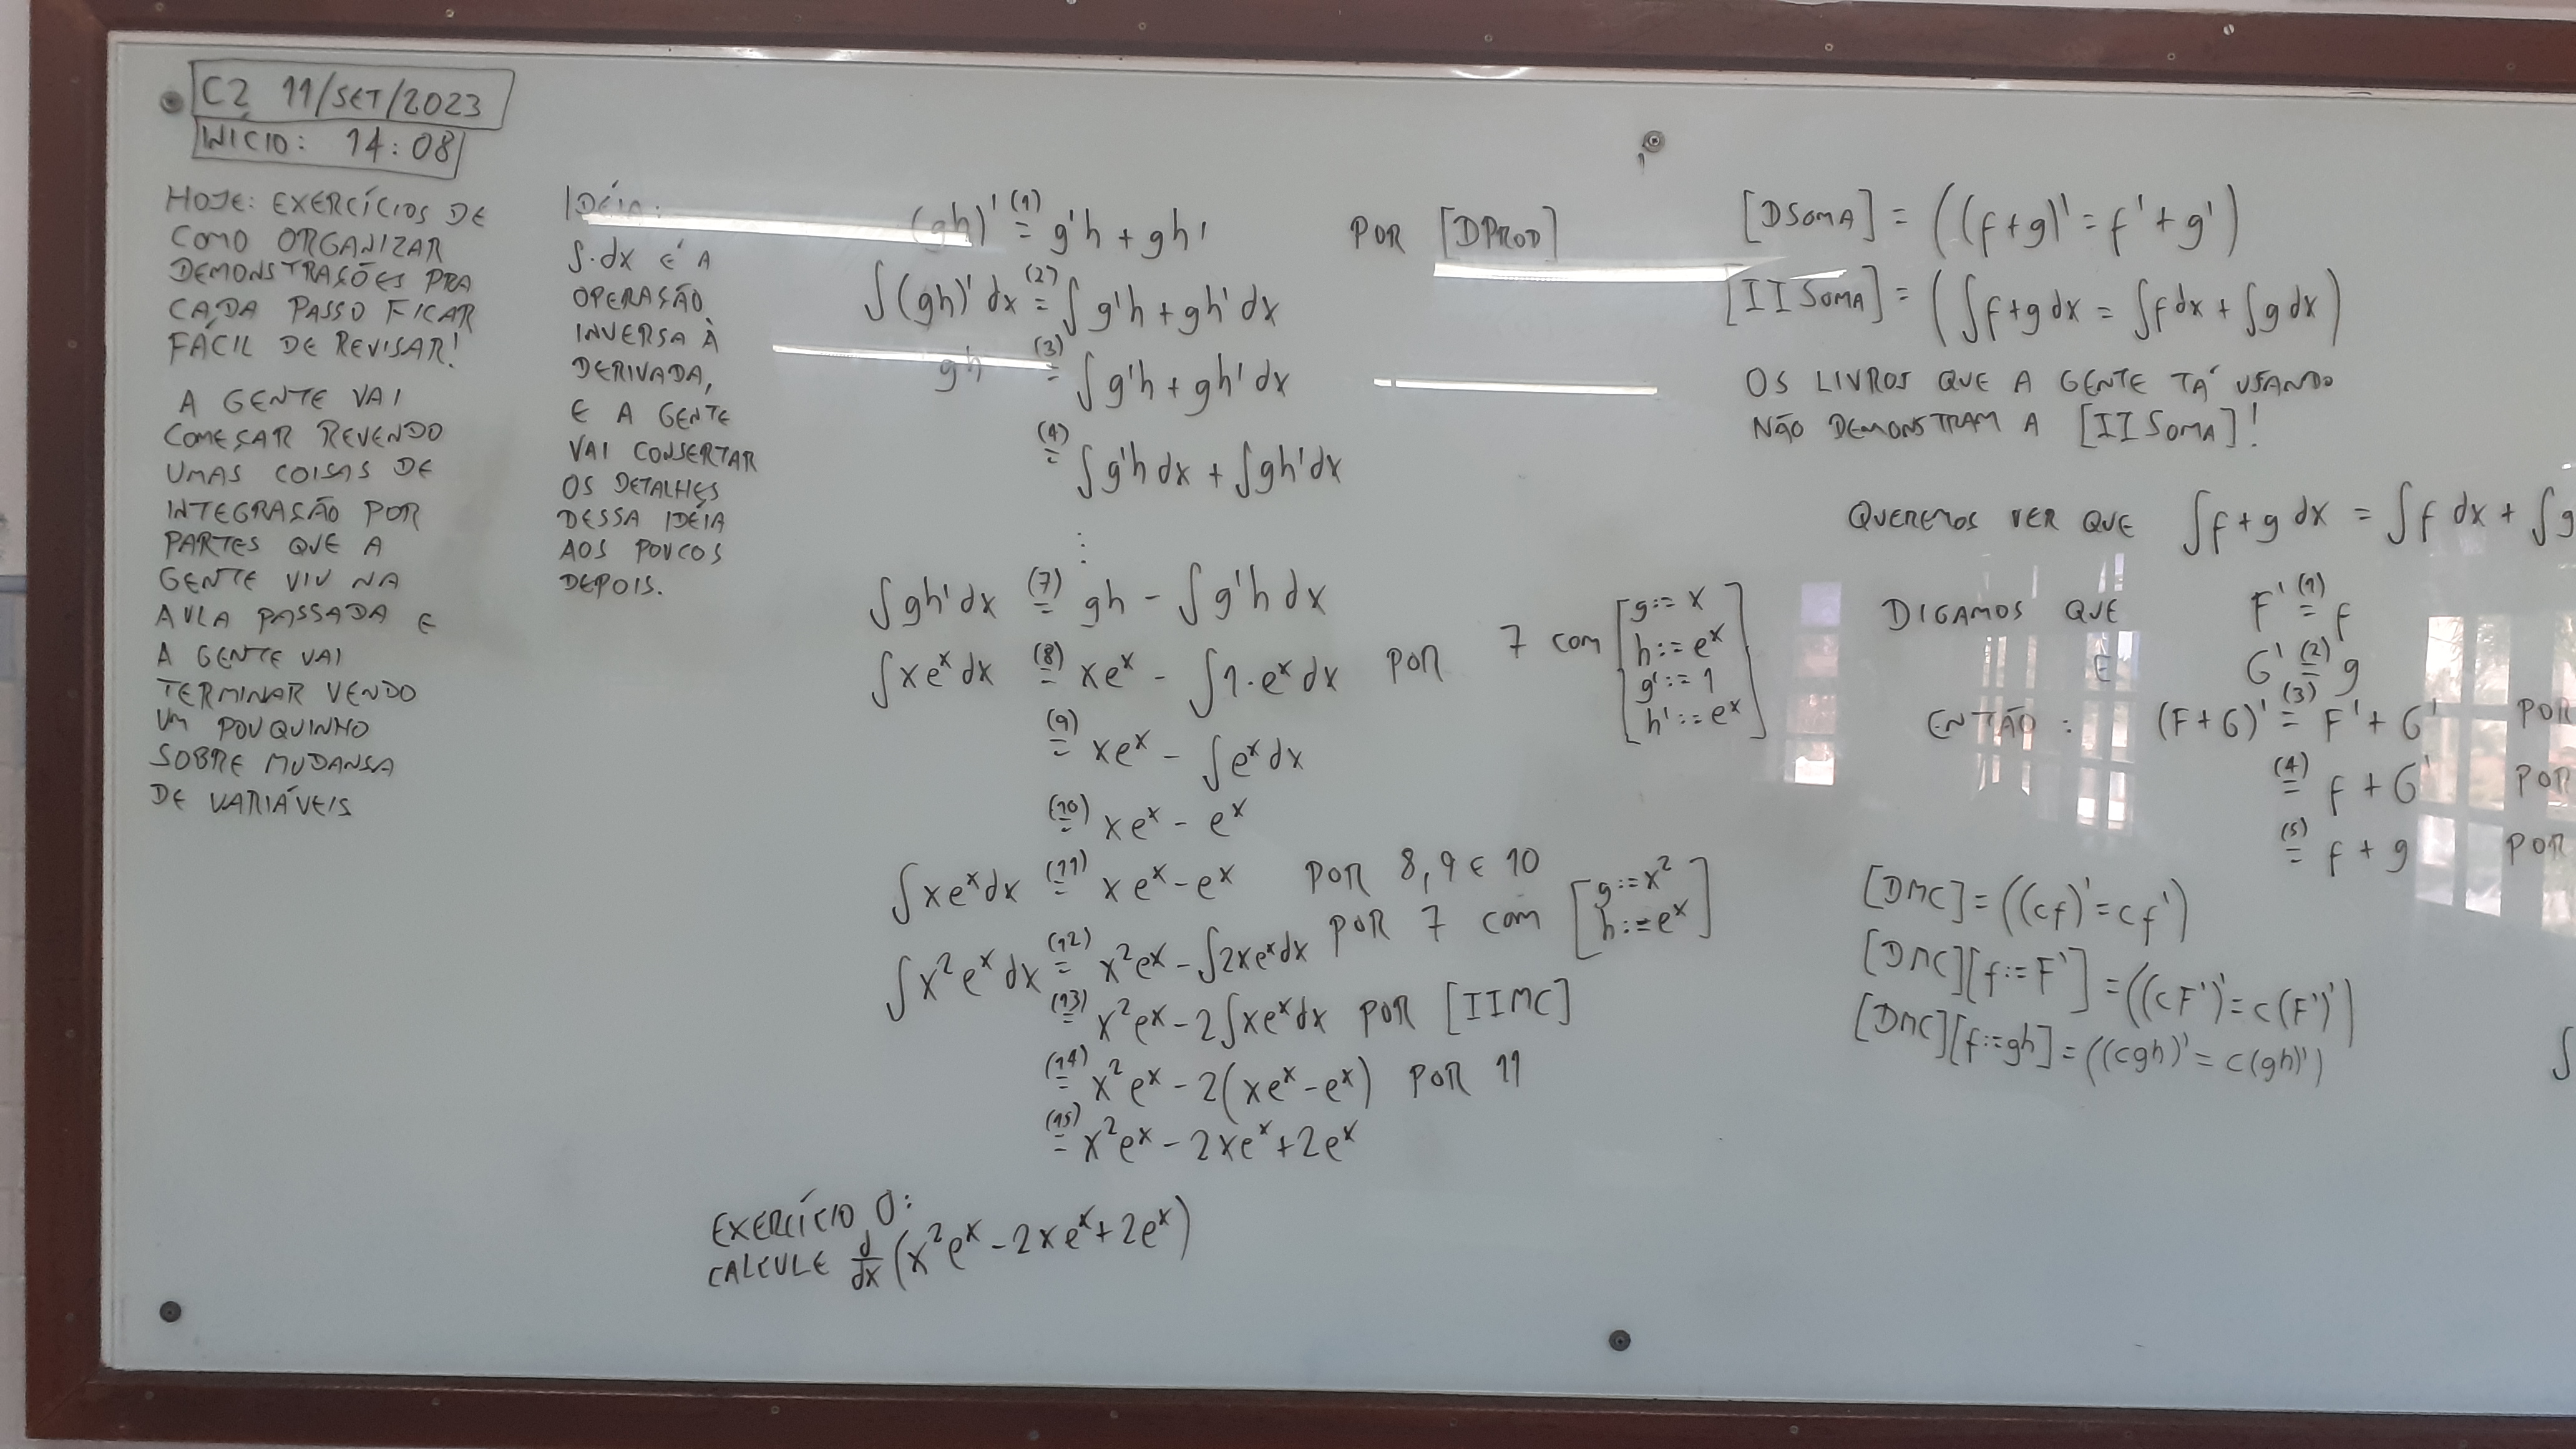 C2 11/SET/2023
INÍCIO: 14:08
HOJE: EXERCÍCIOS DE
COMO ORGANIZAR
DEMONSTRAÇÕES PRA
CADA PASSO FICAR
FÁCIL DE REVISAR!
A GENTE VAI
COMEÇAR REVENDO
UMAS COISAS DE
INTEGRAÇÃO POR
PARTES QUE A
GENTE VIU NA
AULA PASSADA E
A GENTE VAI
TERMINAR VENDO
UM POUQUINHO
SOBRE MUDANÇA
DE VARIÁVEIS
IDÉIA:
∫·dx É A
OPERAÇÃO
INVERSA À
DERIVADA,
E A GENTE
VAI CONSERTAR
OS DETALHES
DESSA IDÉIA
AOS POUCOS
DEPOIS.
(gh)' (1)= g'h + gh' POR [DPROD]
∫(gh)' dx (2)= ∫g'h + gh' dx
gh (3)= ∫g'h + gh' dx
(4)= ∫g'h dx + ∫gh' dx
⋮
∫gh' dx (7)= gh - ∫g'h dx
∫xe^x dx (8)= xe^x - ∫1·e^x dx POR 7 COM [g:=x
h:=e^x
g':=1
h':=e^x]
(9)= xe^x - ∫e^x dx
(10)= xe^x - e^x
∫xe^x dx (11)= xe^x - e^x POR 8, 9 E 10
∫x²e^x dx (12)= x²e^x - ∫2xe^x dx POR 7 COM [g:=x²
h:=e^x]
(13)= x²e^x - 2∫xe^x dx POR [IIMC]
(14)= x²e^x - 2(xe^x - e^x) POR 11
(15)= x²e^x - 2xe^x + 2e^x
EXERCÍCIO 0:
CALCULE d/dx (x²e^x - 2xe^x + 2e^x)
[DSOMA] = ((f+g)' = f' + g')
[IISOMA] = (∫f+g dx = ∫f dx + ∫g dx)
OS LIVROS QUE A GENTE TÁ USANDO
NÃO DEMONSTRAM A [IISOMA]!
QUEREMOS VER QUE ∫f+g dx = ∫f dx + ∫g
DIGAMOS QUE F' (1)= f
E G' (2)= g
ENTÃO: (F+G)' (3)= F' + G' POR
(4)= f + G' POR
(5)= f + g POR
[DMC] = ((cf)' = cf')
[DMC][f:=F'] = ((cF')' = c(F')')
[DMC][f:=gh] = ((cgh)' = c(gh)')
∫